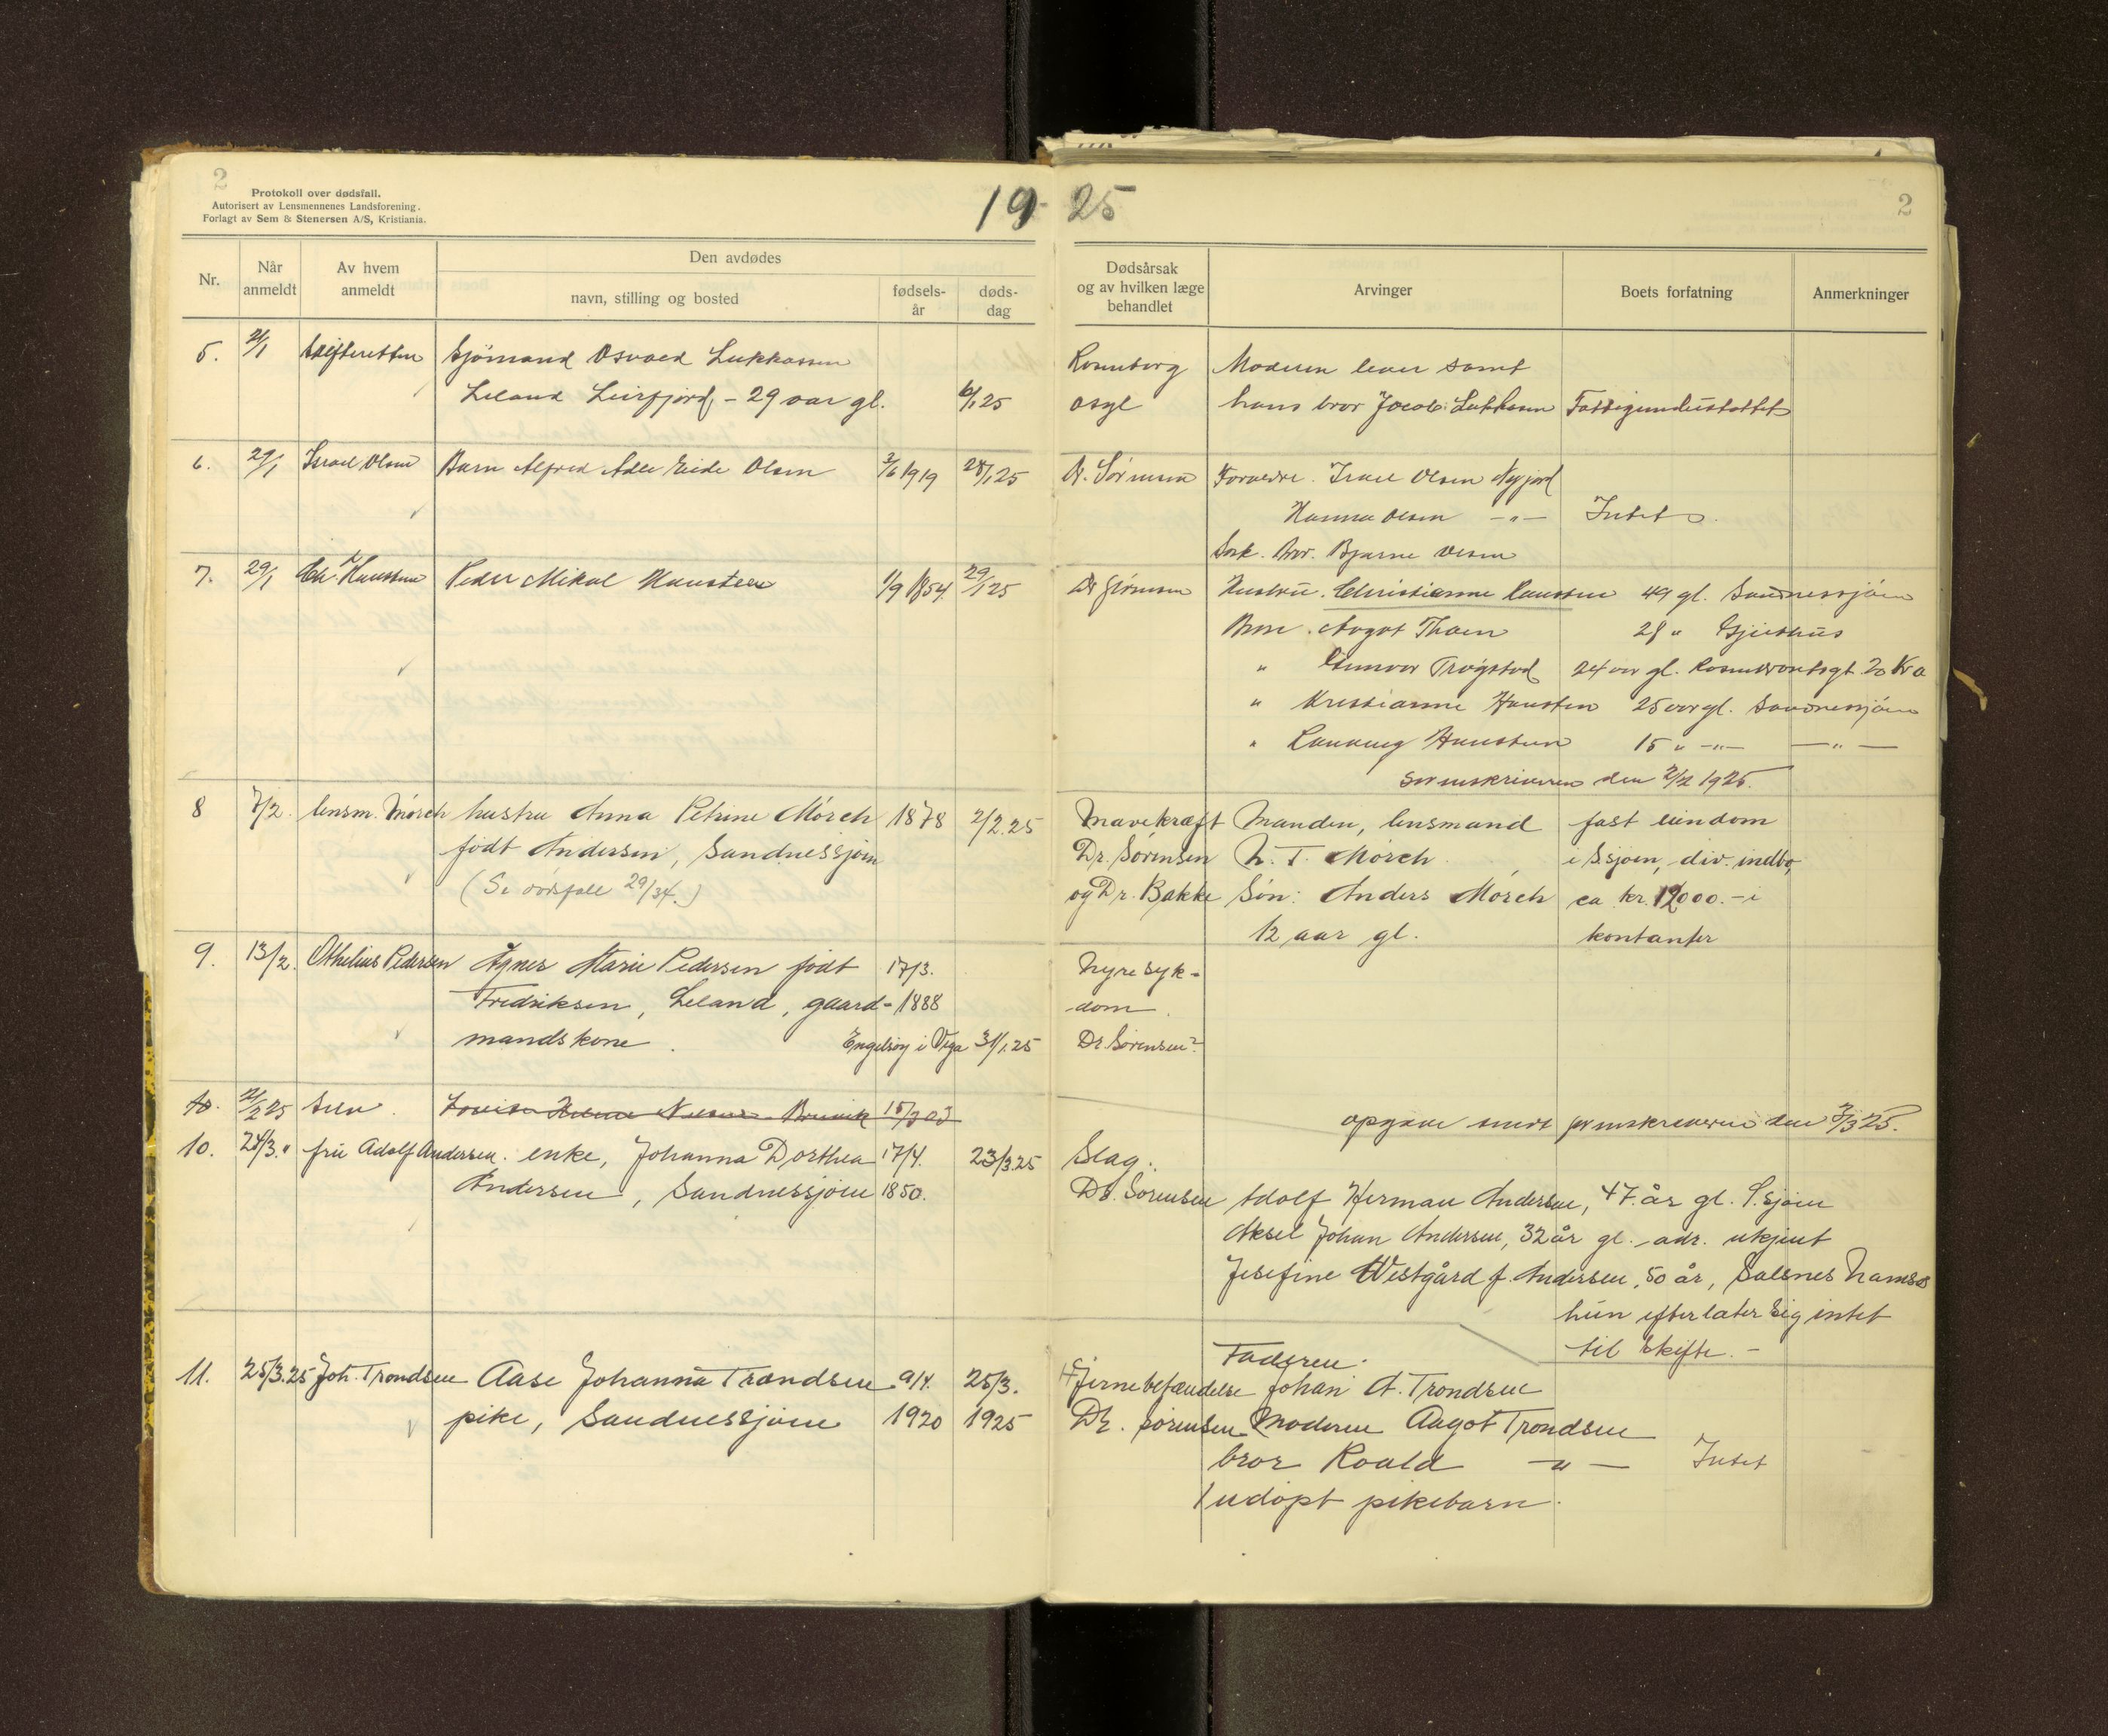 2
Protokoll over dødsfall.
Autorisert av Lensmennenes Landsforening.
Forlagt av Sem & Stenersen A/S, Kristiania.
19 25
2
Nr.
Når anmeldt
Av hvem anmeldt
Den avdødes
navn, stilling og bosted
fødsels-år
døds-dag
Dødsårsak og av hvilken læge behandlet
Arvinger
Boets forfatning
Anmerkninger
5. Skifteretten Sjömand Osvald Lukkassen Rosenborg Moderen lever samt
Leland Leirfjord, - 29 aar gl. 6/1 25 asyl hans bror Jacob Lukkassen Fattigunderstøttet
6. 29/1 Israel Olsen Barn Alfred Adle Eide Olsen 3/6 1919 28/1 25 Dr. Sörensen Foreldre. Israel Olsen
Hanna Olsen -"- Intet.
Søsk. Bror. Bjarne Olsen
7. 29/1 Chr. Haustein Peder Mikal Haustein 1/9 1854 29/1 25 Dr Sörensen Hustru. Christianne Haustein 49 gl. Sandnessjöen
Barn. Aagot Thoen 28 "
" Gunvor Trögstad 24 aar gl.
" Kristianne Haustein 25 aar gl. Sandnessjöen
" Haustein 15 " -"- -"-
Sorenskriveren den 2/2 1925.
8 7/2. lensm. Mörch hustru Anna Petrine Mörch 1878 2/2.25 Mavekræft Manden, lensmand fast eiendom
født Andersen, Sandnessjøen Dr. Sørensen N. T. Mörch. i S.sjøen, div. indbo,
(Se dødsfall 29/34.) og Dr. Bakke Søn: Anders Mörch ca kr. 12000.- i
12 aar gl. kontanter
9. 13/2. Othelius Pedersen Agnes Marie Pedersen født 17/3. Nyresyk-
Fredriksen, Leland, gaard- 1888 dom.
mandskone. Engelsøy i Vega 31/1.25 Dr. Sørensen?
10. 21/2 25 Selv. Nielsen Brunvik 15/3 03 opgave sendt sorenskriveren den 3/3 25.
10. 24/3. " fru Adolf Andersen. enke, Johanna Dorthea 17/4. 23/3.25 Slag.
Andersen, Sandnessjøen 1850. Dr. Sørensen Adolf Herman Andersen, 47 år gl. S.sjøen
Aksel Johan Andersen, 32 år gl. adr. ukjent
Josefine Westgård f. Andersen, 50 år, Salsnes Namsos
hun efterlater sig intet
til skifte. -
11. 25/3.25 Joh. Trondsen Aase Johanna Trondsen 9/4. 25/3. Hjernebetændelse Faderen: Johan A. Trondsen
pike, Sandnessjøen 1920 1925 Dr. Sørensen Moderen Aagot Trondsen
bror Roald -"- Intet
1 udøpt pikebarn.